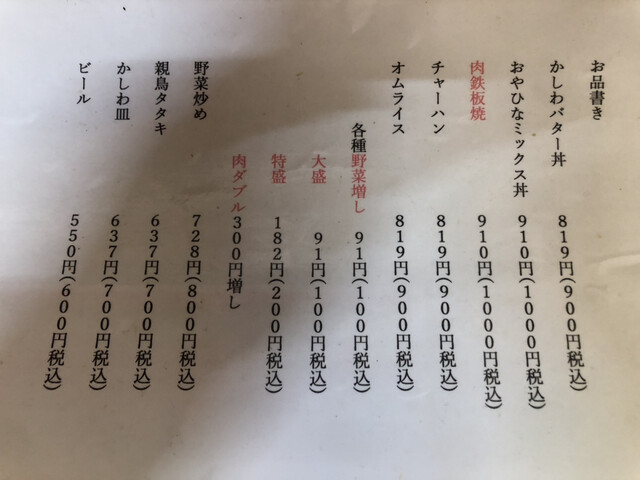 お品書き
かしわバター丼 819円(900円税込)
おやひなミックス丼 910円(1000円税込)
肉鉄板焼 910円(1000円税込)
チャーハン 819円(900円税込)
オムライス 819円(900円税込)
各種野菜増し 91円(100円税込)
大盛 91円(100円税込)
特盛 182円(200円税込)
肉ダブル300円増し
野菜炒め 728円(800円税込)
親鳥タタキ 637円(700円税込)
かしわ皿 637円(700円税込)
ビール 550円(600円税込)